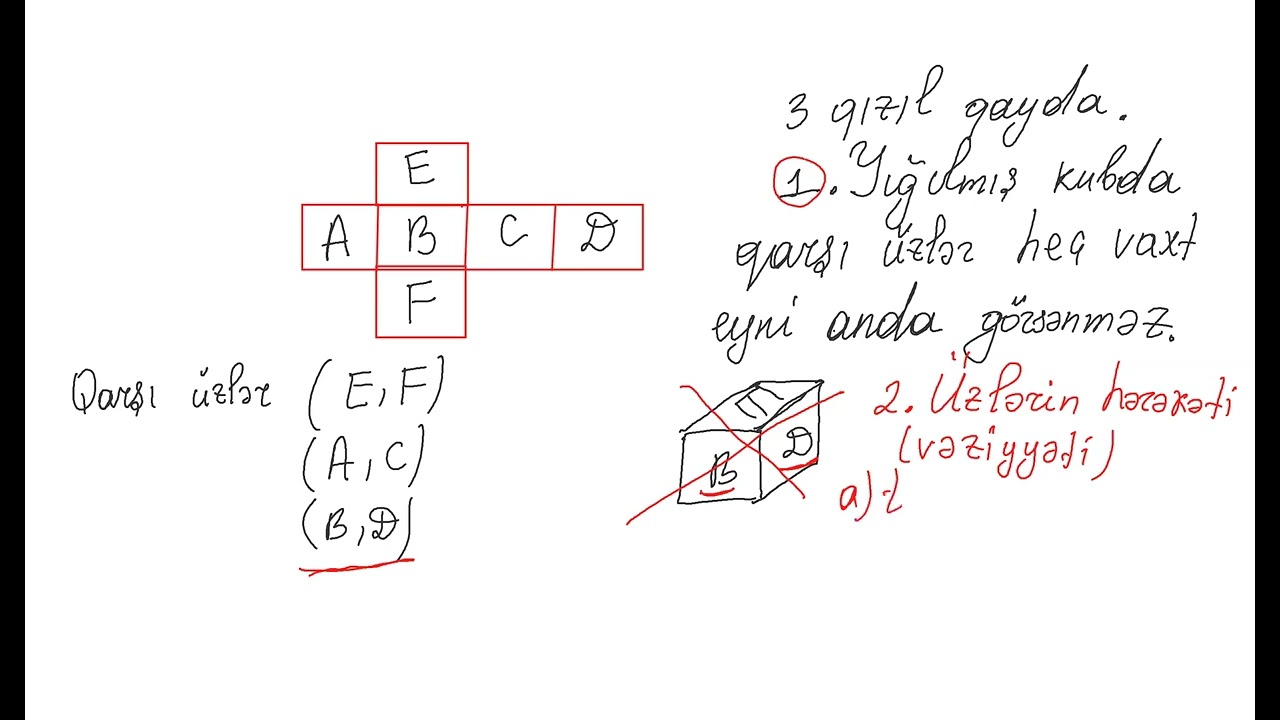 3 qızıl qayda.
1. Yığılmış kubda
qarşı üzlər heç vaxt
eyni anda görsənməz.
E
A B C D
F
Qarşı üzlər (E, F)
(A, C)
(B, D)
E
B D
2. Üzlərin hərəkəti
(vəziyyəti)
a)